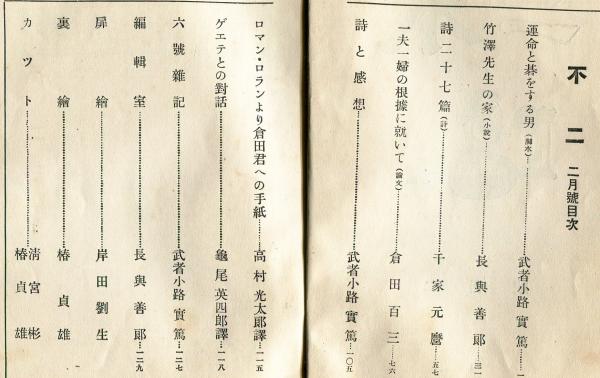 不二 二月號目次
運命と碁をする男(脚本)……武者小路實篤…一
竹澤先生の家(小說)……長與善郎…三一
詩二十七篇(詩)……千家元麿…五七
一夫一婦の根據に就いて(論文)……倉田百三…七六
詩と感想……武者小路實篤…一〇五
ロマン・ロランより倉田君への手紙……高村光太郎譯…一一五
ゲエテとの對話……龜尾英四郎譯…一一八
六號雜記……武者小路實篤…一二七
編輯室……長與善郎…一二九
扉繪……岸田劉生
裏繪……椿貞雄
カット……淸宮彬
椿貞雄